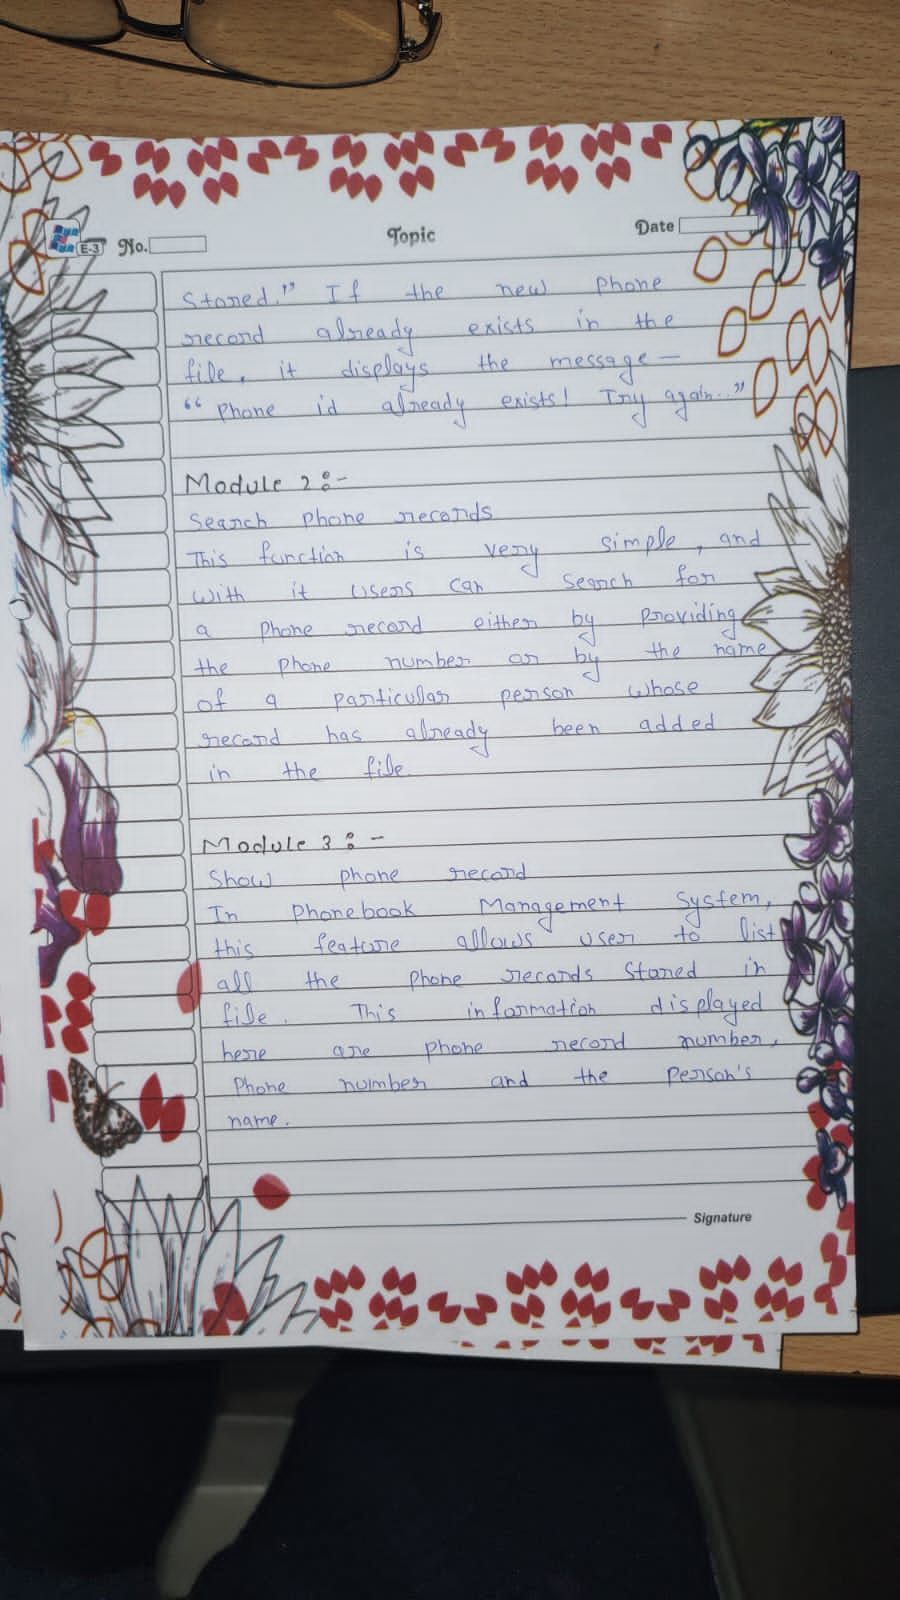 E-3 No. Topic Date
Stored." If the new phone
record already exists in the
file, it displays the message—
“ phone id already exists! Try again..”
Module 2:-
Search phone records
This function is very simple, and
with it users can search for
a phone record either by providing
the phone number or by the name
of a particular person whose
record has already been added
in the file.
Module 3:-
Show phone record
In Phonebook Management System,
this feature allows user to list
all the phone records stored in
file. This information displayed
here are phone record number,
Phone number and the person's
name.
Signature